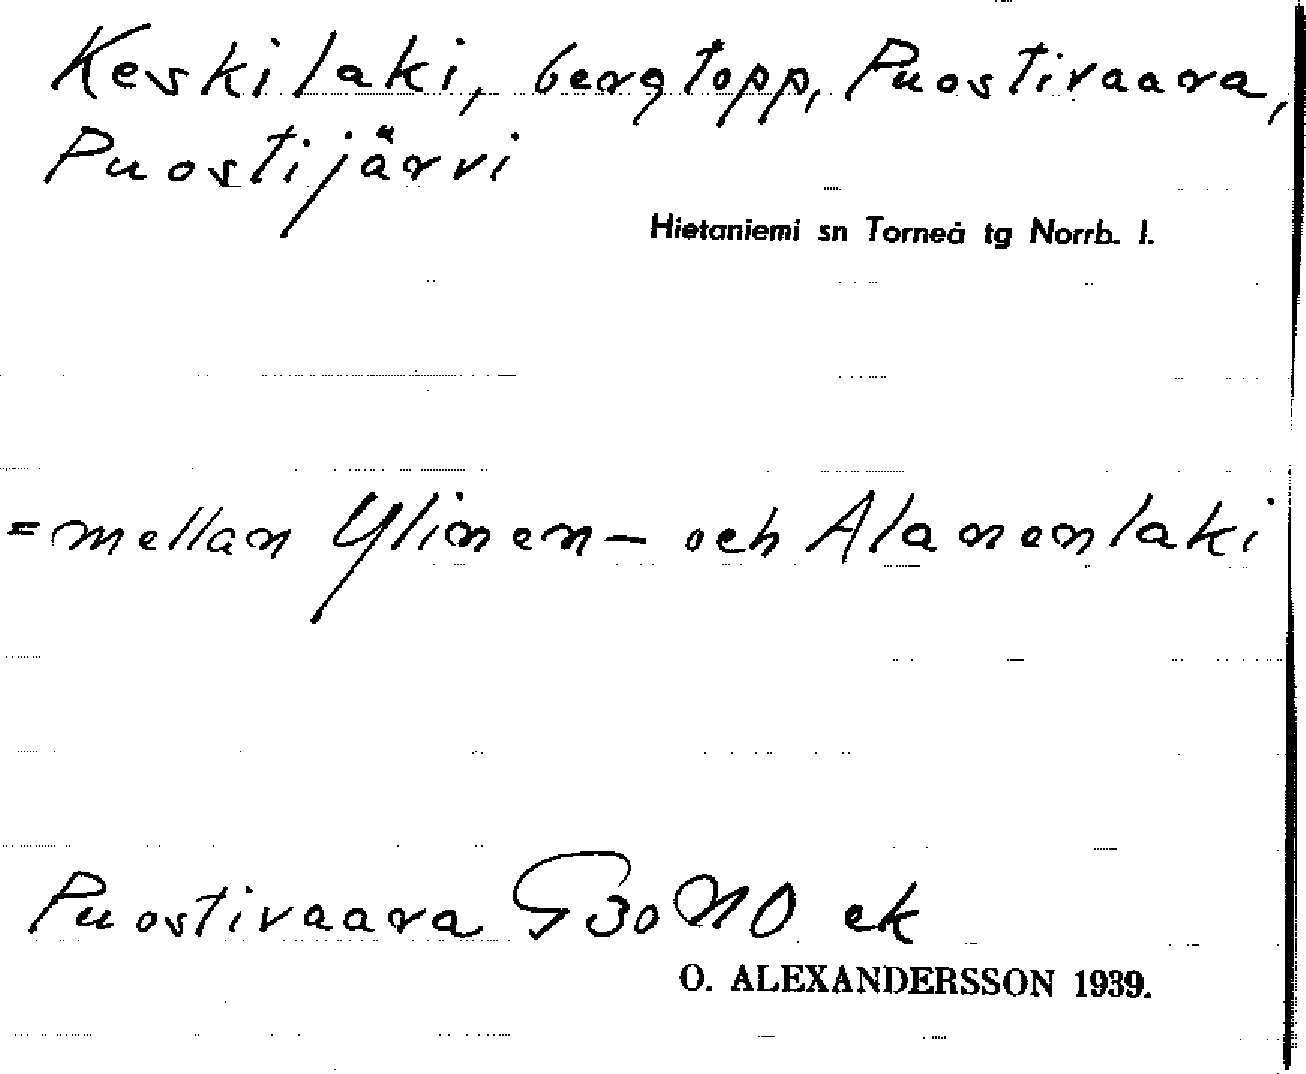 Keskilaki, bergtopp, Puostivaara,
Puostijärvi
Hietaniemi sn Torneå tg Norrb. l.
=mellan Ylinen- och Alanenlaki
Puostivaara G30NO ek
O. ALEXANDERSSON 1939.